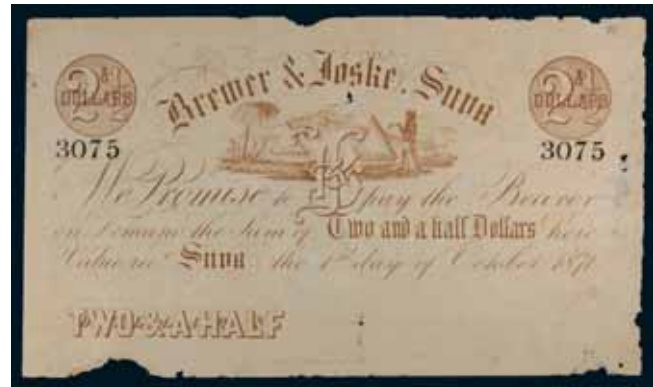 2 & ½ DOLLARS
Brewer & Joske, Suva
2 & ½ DOLLARS
3075
3075
We Promise to pay the Bearer
on Demand the Sum of Two and a half Dollars here
Value rec Suva the 1st day of October 1871
TWO & A HALF